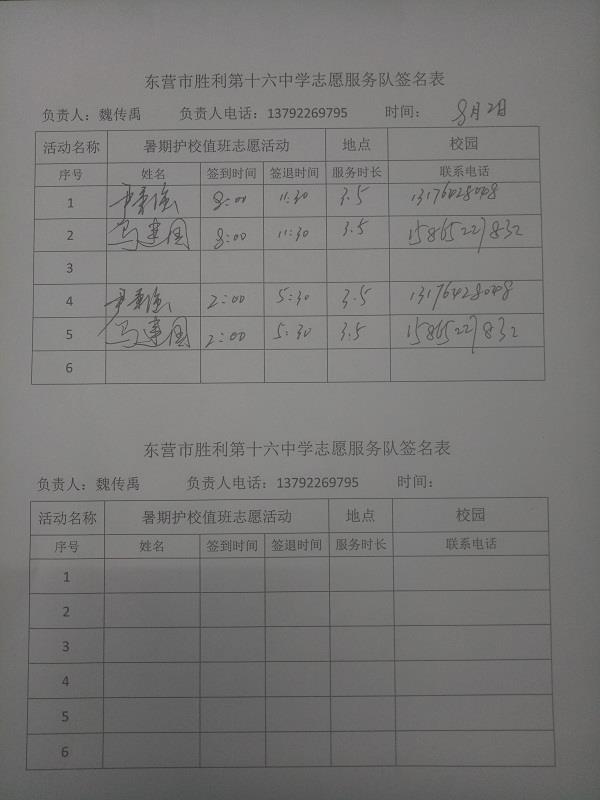 东营市胜利第十六中学志愿服务队签名表
负责人：魏传禹 负责人电话：13792269795 时间： 8月2日
活动名称 暑期护校值班志愿活动 地点 校园
序号 姓名 签到时间 签退时间 服务时长 联系电话
1 8:00 11:30 3.5 13176428048
2 马建国 8:00 11:30 3.5 15865227832
3
4 2:00 5:30 3.5 13176428048
5 马建国 2:00 5:30 3.5 15865227832
6
东营市胜利第十六中学志愿服务队签名表
负责人：魏传禹 负责人电话：13792269795 时间：
活动名称 暑期护校值班志愿活动 地点 校园
序号 姓名 签到时间 签退时间 服务时长 联系电话
1
2
3
4
5
6